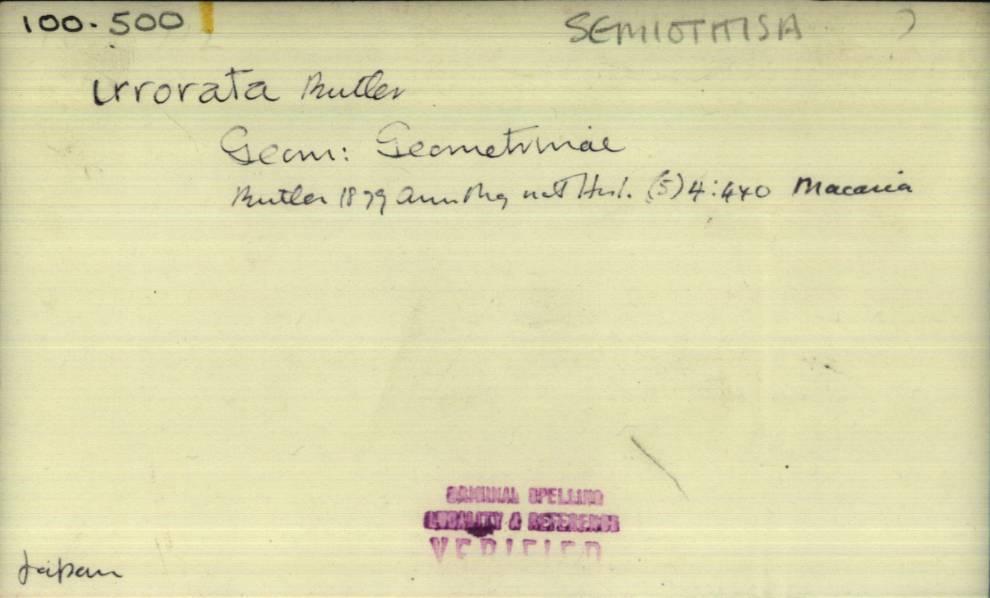 100·500 SEMIOTHISA
irrorata Butler
Geom: Geometrinae
Butler 1879 Ann Mag nat Hist. (5) 4:440 Macaria
ORIGINAL SPELLING
LOCALITY & REFERENCE
VERIFIED
Japan